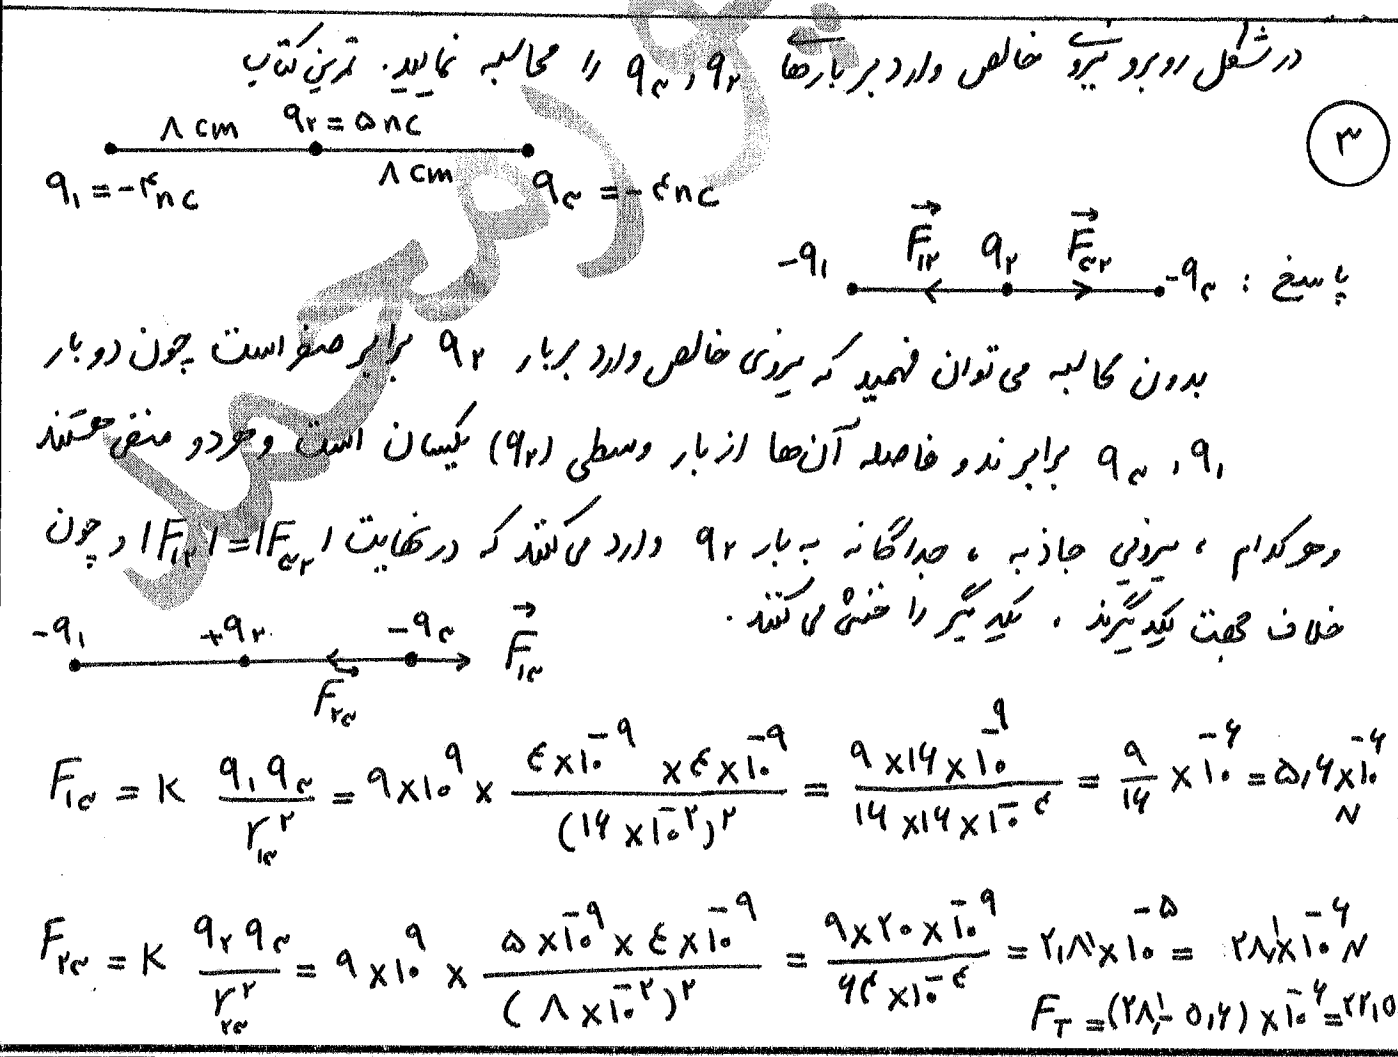 در شکل روبرو نیروی خالص وارد بر بارهای q۲ و q۳ را محاسبه نمایید. تمرین کتاب
۳
۸ cm q۲ = ۵ nc
۸ cm
q۱ = -۴ nc q۳ = -۴ nc
پاسخ : -q۱ F۱۲ q۲ F۳۲ -q۳
بدون محاسبه می‌توان فهمید که نیروی خالص وارد بر بار q۲ برابر صفر است چون دو بار
q۱ و q۳ برابرند و فاصله آن‌ها از بار وسطی (q۲) یکسان است و هر دو منفی هستند
و هر کدام ، نیروی جاذبه ، جداگانه به بار q۲ وارد می‌کنند که در نهایت |F۱۲| = |F۳۲| و چون
خلاف جهت یکدیگرند ، یکدیگر را خنثی می‌کنند .
-q۱ +q۲ -q۳ F۱۳
F۲۳
F۱۳ = K q۱q۳ / r۱۳^۲ = ۹×۱۰^۹ × ۴×۱۰^-۹ × ۴×۱۰^-۹ / (۱۶×۱۰^-۲)^۲ = ۹×۱۶×۱۰^-۹ / ۱۶×۱۶×۱۰^-۴ = ۹/۱۶ × ۱۰^-۶ = ۵,۶×۱۰^-۶ N
F۲۳ = K q۲q۳ / r۲۳^۲ = ۹×۱۰^۹ × ۵×۱۰^-۹ × ۴×۱۰^-۹ / (۸×۱۰^-۲)^۲ = ۹×۲۰×۱۰^-۹ / ۶۴×۱۰^-۴ = ۲,۸۱×۱۰^-۵ = ۲۸,۱×۱۰^-۶ N
F_T = (۲۸,۱ - ۵,۶) × ۱۰^-۶ = ۲۲,۵